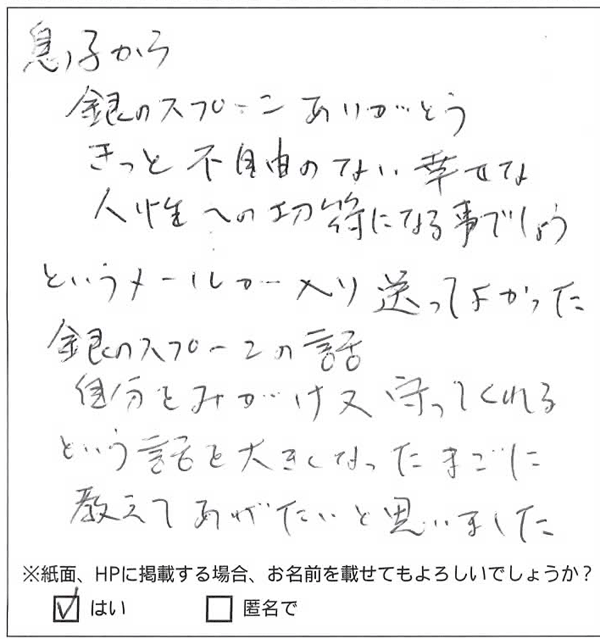 息子から
銀のスプーンありがとう
きっと不自由のない幸せな
人性への切符になる事でしょう
というメールが入り送ってよかった
銀のスプーンの話
自分をみがけ又守ってくれる
という話を大きくなったまごに
教えてあげたいと思いました
※紙面、HPに掲載する場合、お名前を載せてもよろしいでしょうか？
☑ はい □ 匿名で